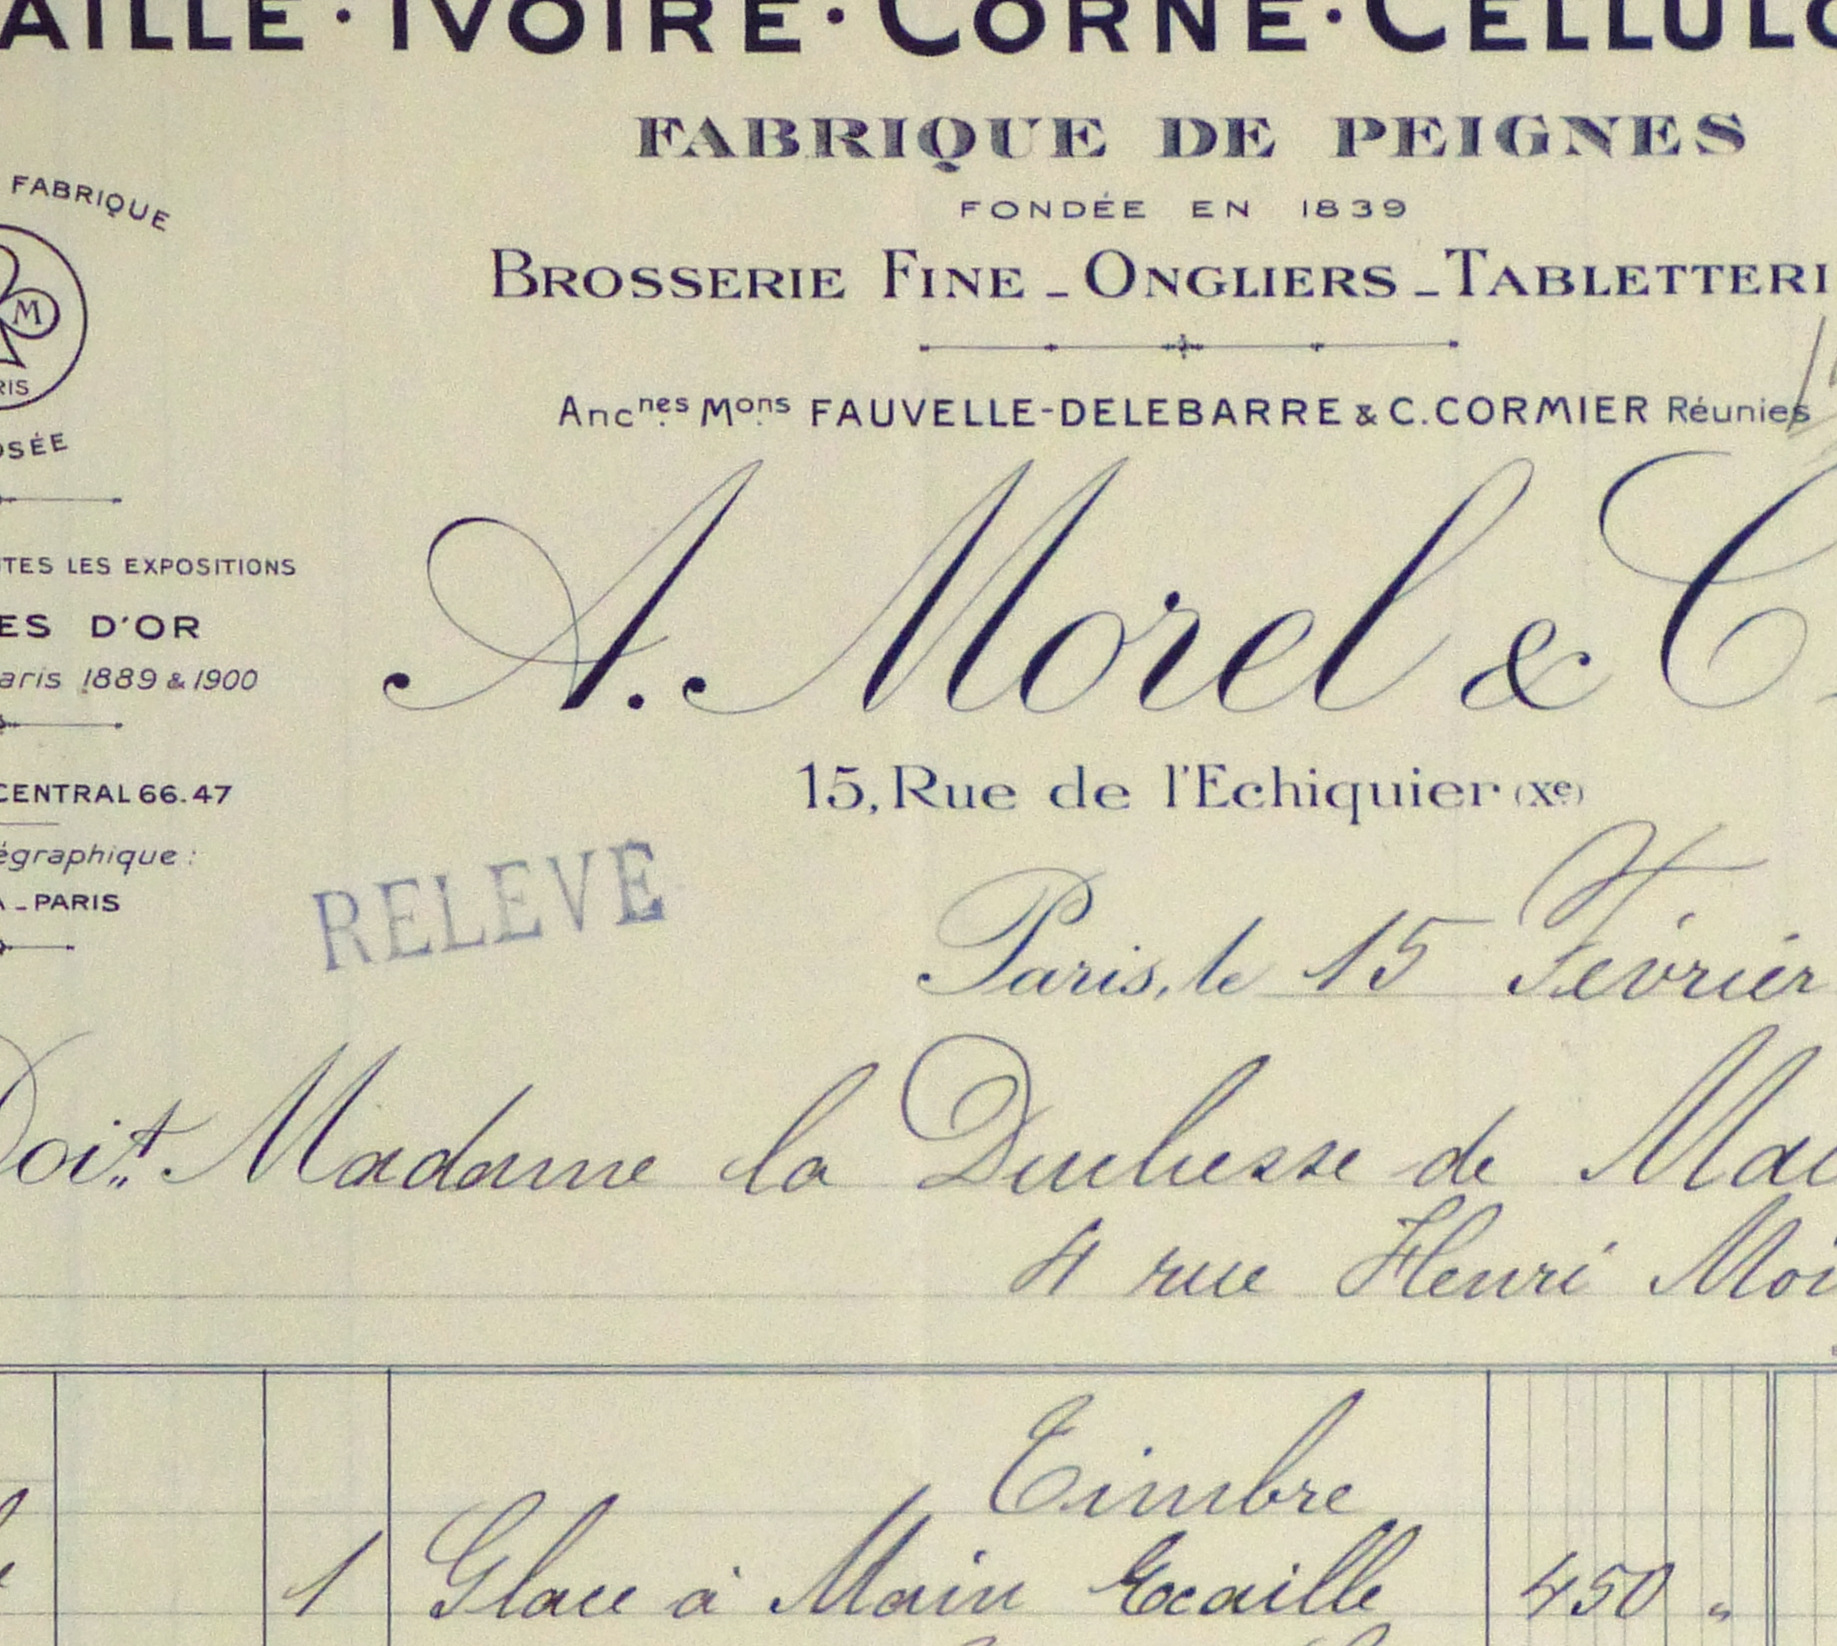 AILLE · IVOIRE · CORNE · CELLULO
FABRIQUE DE PEIGNES
FONDÉE EN 1839
BROSSERIE FINE _ ONGLIERS _ TABLETTERI
Ancnes Mons FAUVELLE-DELEBARRE & C. CORMIER Réunies
A. Morel & C
15, Rue de l'Echiquier (Xe)
FABRIQUE
M
RIS
OSÉE
TES LES EXPOSITIONS
ES D'OR
aris 1889 & 1900
CENTRAL 66.47
égraphique :
A _ PARIS
RELEVE
Paris, le 15 Février
Doit Madame la Duchesse de Mai
4 rue Henri Moi
Timbre
1 Glace à Main Ecaille 450 "